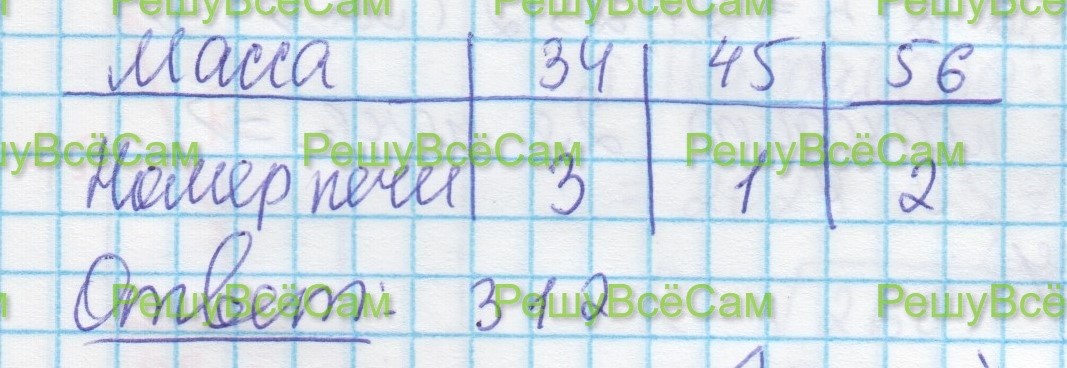 РешуВсёСам РешуВсёСам РешуВсёСам
Масса 34 45 56
РешуВсёСам РешуВсёСам РешуВсёСам
Номер печи 3 1 2
РешуВсёСам РешуВсёСам РешуВсё
Ответ: 312